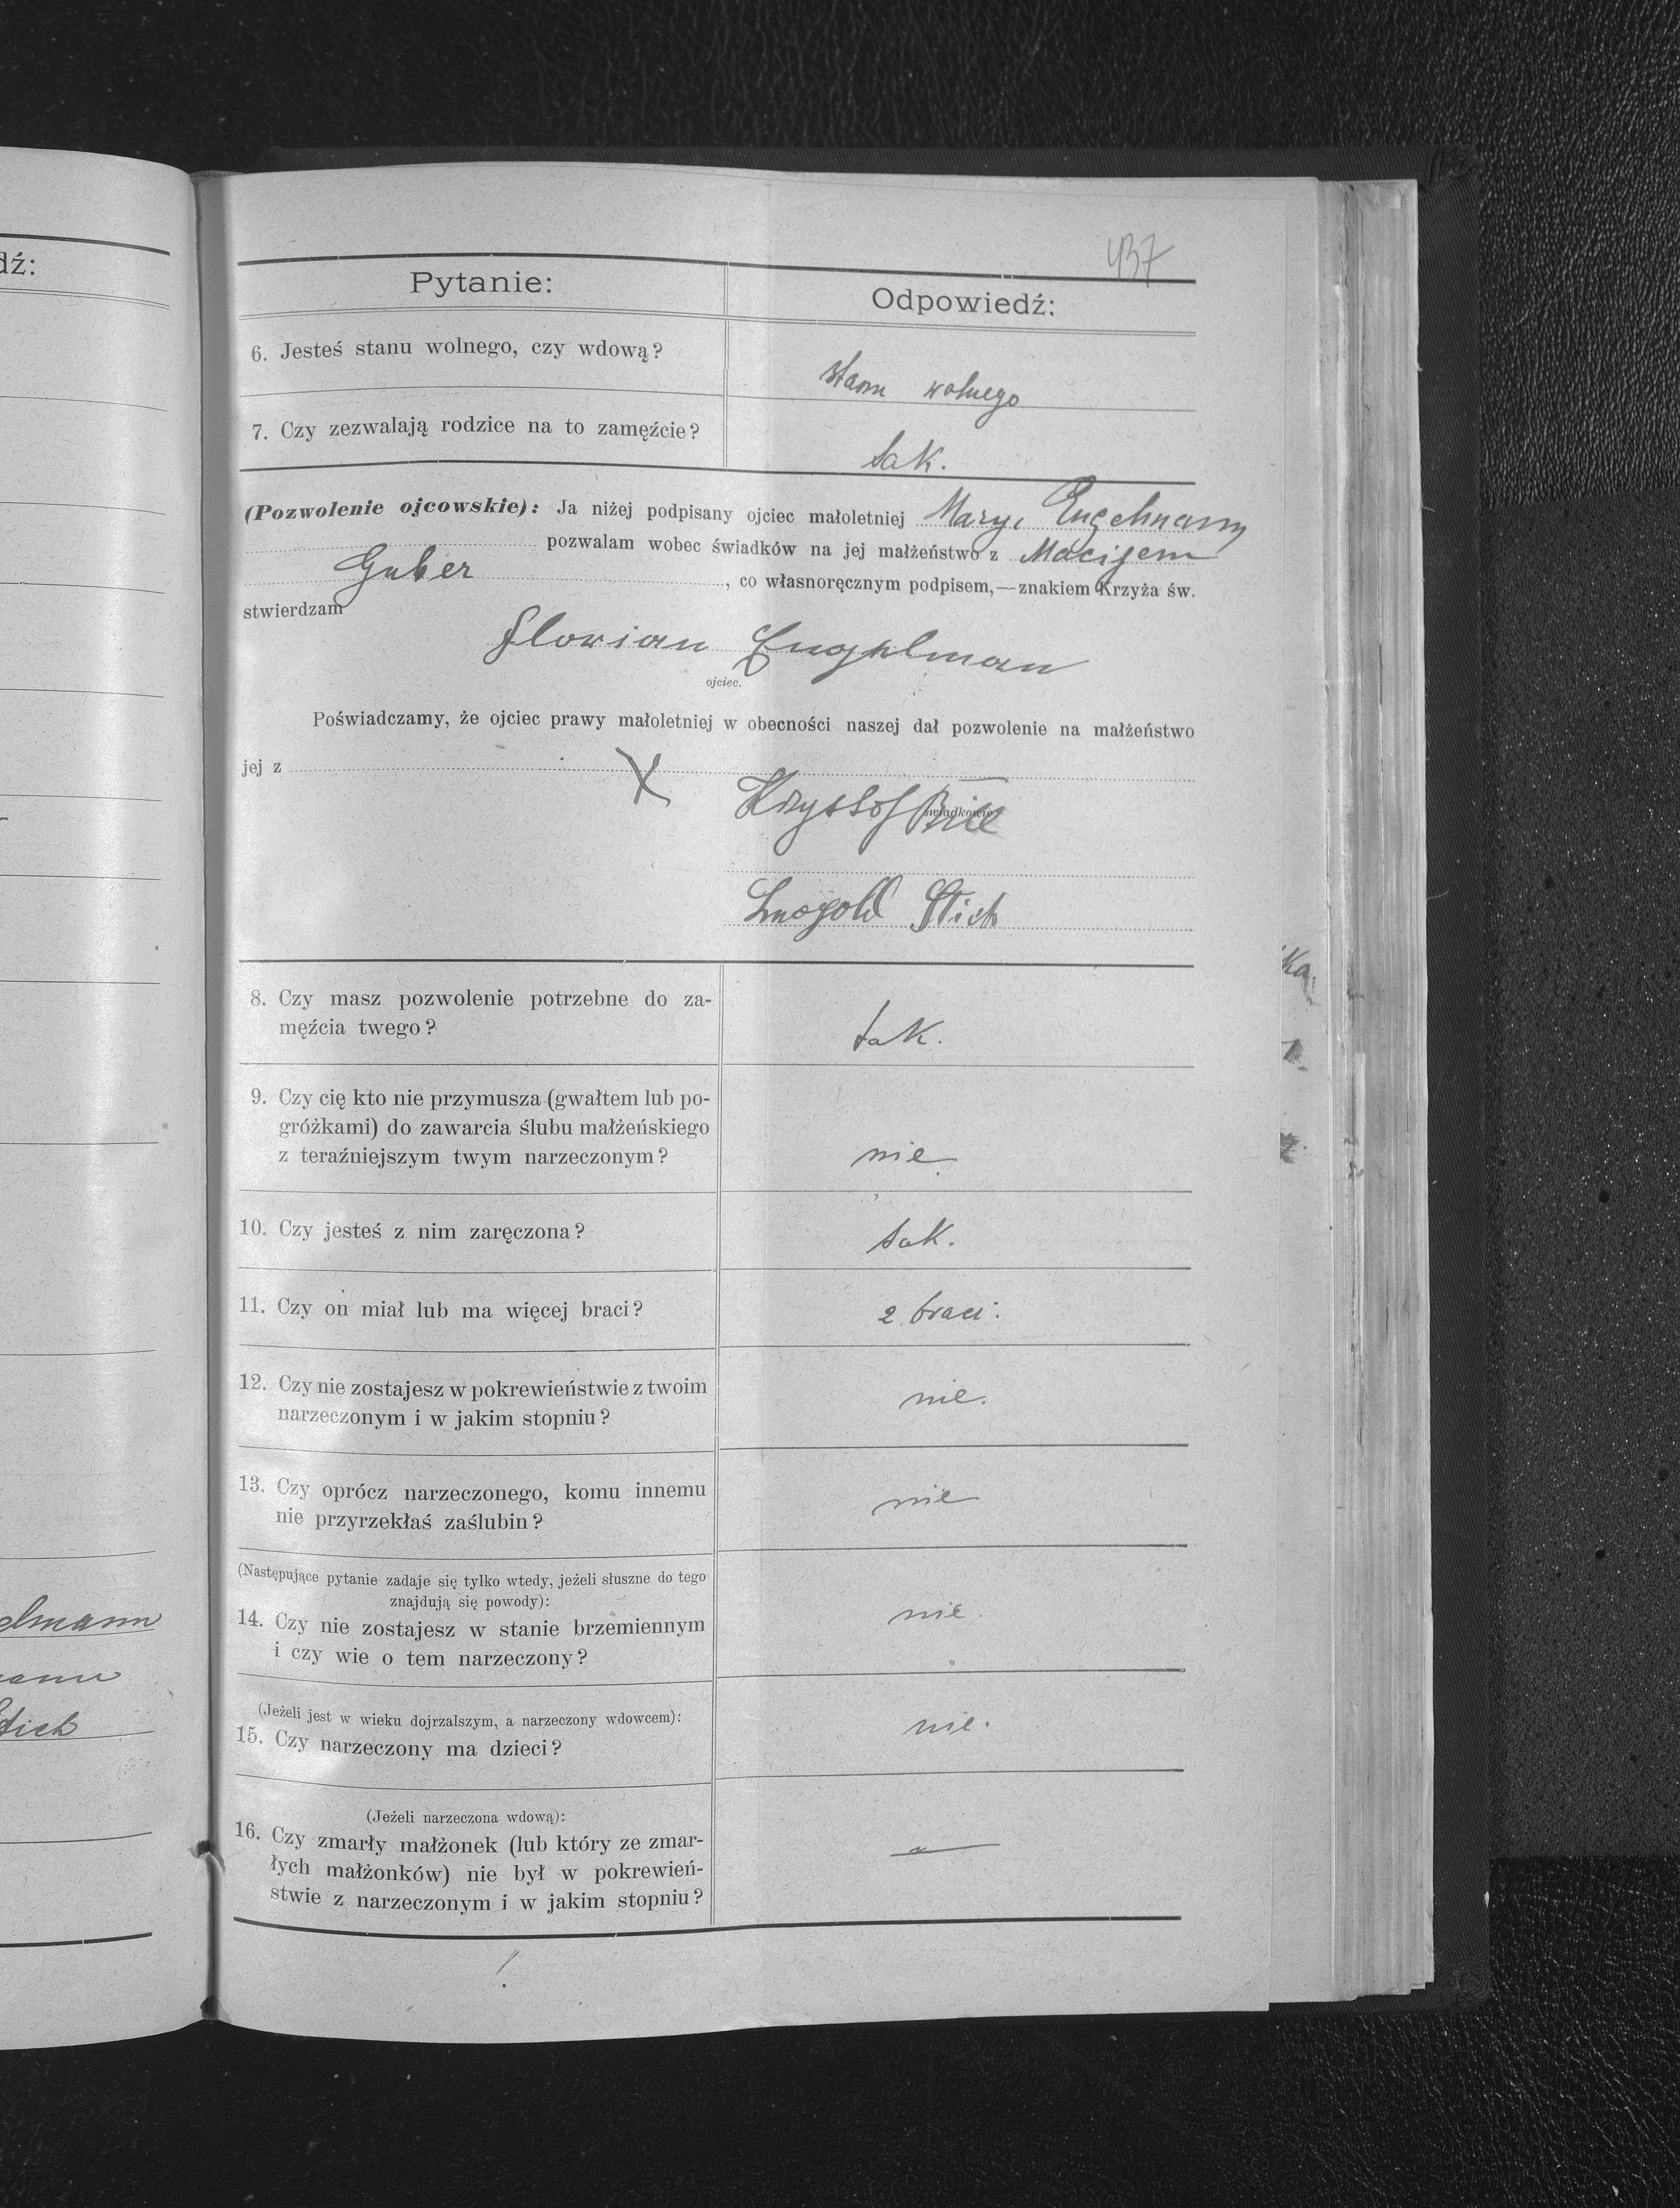 dź:
elmann
Stich
437
Pytanie:
Odpowiedź:
6. Jesteś stanu wolnego, czy wdową?
stanu wolnego
7. Czy zezwalają rodzice na to zamęźcie?
tak.
(Pozwolenie ojcowskie): Ja niżej podpisany ojciec małoletniej Maryi Engelmann
pozwalam wobec świadków na jej małżeństwo z Macijem
Guber , co własnoręcznym podpisem,—znakiem Krzyża św.
stwierdzam
Florian Engelman
ojciec.
Poświadczamy, że ojciec prawy małoletniej w obecności naszej dał pozwolenie na małżeństwo
jej z
X Krysstof Bill
świadkowie
Leopold Stich
8. Czy masz pozwolenie potrzebne do za-
męźcia twego?
tak.
9. Czy cię kto nie przymusza (gwałtem lub po-
gróżkami) do zawarcia ślubu małżeńskiego
z teraźniejszym twym narzeczonym?
nie
10. Czy jesteś z nim zaręczona?
tak.
11. Czy on miał lub ma więcej braci?
2 braci.
12. Czy nie zostajesz w pokrewieństwie z twoim
narzeczonym i w jakim stopniu?
nie.
13. Czy oprócz narzeczonego, komu innemu
nie przyrzekłaś zaślubin?
nie
(Następujące pytanie zadaje się tylko wtedy, jeżeli słuszne do tego
znajdują się powody):
14. Czy nie zostajesz w stanie brzemiennym
i czy wie o tem narzeczony?
nie.
(Jeżeli jest w wieku dojrzalszym, a narzeczony wdowcem):
15. Czy narzeczony ma dzieci?
nie.
(Jeżeli narzeczona wdową):
16. Czy zmarły małżonek (lub który ze zmar-
łych małżonków) nie był w pokrewień-
stwie z narzeczonym i w jakim stopniu?
—